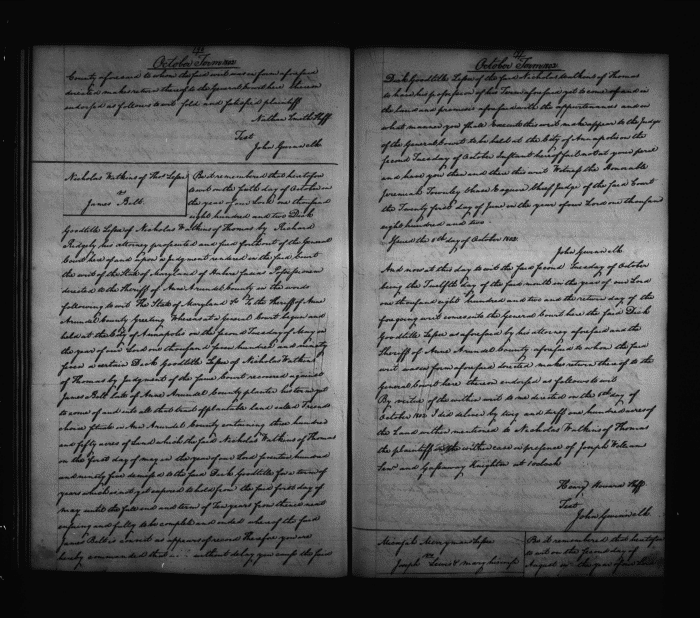 October Term 1802
County aforesaid to whom the said writ was in form aforesaid
directed makes return thereof to the General Court here thereon
endorsed as follows to wit sold and satisfied plaintiff
Shff
Test
John Gwinn clk
Nicholas Watkins of Thos Lessee
vs
James Belt
Be it remembered that heretofore
to wit on the fifth day of October in
the year of our Lord one thousand
eight hundred and two Dick
Goodtitle Lessee of Nicholas Watkins of Thomas by Richard
Ridgely his attorney prosecuted and sued forth out of the General
Court here of and upon a judgment rendered in the said Court
the writ of the State of Maryland of Habere facias Possessionem
directed to the Sheriff of Ann Arundel County in the words
following to wit The State of Maryland &c To the Sheriff of Ann
Arundel County Greeting Whereas at a General Court begun and
held at the City of Annapolis on the Second Tuesday of May in
the year of our Lord one thousand seven hundred and ninety
a certain Dick Goodtitle Lessee of Nicholas Watkins
of Thomas by Judgment of the same Court recovered against
James Belt late of Ann Arundel County planter his term yet
to come of and in all that tract of land called Friends
choice in Ann Arundel County containing three hundred
and fifty acres of Land which the said Nicholas Watkins of Thomas
on the first day of May in the year of our Lord seventeen hundred
and ninety five demised to the said Dick Goodtitle for a term of
years which is not yet expired to hold from the said first day of
May until the full end and term of Ten years from thence next
ensuing and fully to be complete and ended whereof the said
James Belt is convict as appears of record Therefore you are
hereby commanded that without delay you cause the said
October Term 1802
Dick Goodtitle Lessee of the said Nicholas Watkins of Thomas
to have his possession of his Term aforesaid yet to come of and in
the land and premises aforesaid with the appurtenances and in
what manner you shall Execute this writ make appear to the Judges
of the General Court to be held at the City of Annapolis on the
second Tuesday of October Instant hereof fail not at your peril
and have you then and there this writ Witness the Honorable
Jeremiah Townley Chase Esquire Chief Judge of the said Court
the Twenty first day of June in the year of our Lord one thousand
eight hundred and two
Issued the 5th day of October 1802
John Gwinn clk
And now at this day to wit the said second Tuesday of October
being the Twelfth day of the said month in the year of our Lord
one thousand eight hundred and two and the return day of the
foregoing writ comes into the General Court here the said Dick
Goodtitle Lessee as aforesaid by his attorney aforesaid and the
Sheriff of Ann Arundel County aforesaid to whom the said
writ was in form aforesaid directed makes return thereof to the
General Court here thereon endorsed as follows to wit
By virtue of the within writ to me directed on the day of
October 1802 I did deliver by twig and turff one hundred acres of
the Land within mentioned to Nicholas Watkins of Thomas
the plaintiff in the within case in presence of Joseph
and Gassaway Knighton at 1 oClock
Henry Howard Shff
Test
John Gwinn clk
Lessee
vs
Joseph
Be it remembered that heretofore
to wit on the second day of
August in the year of our Lord